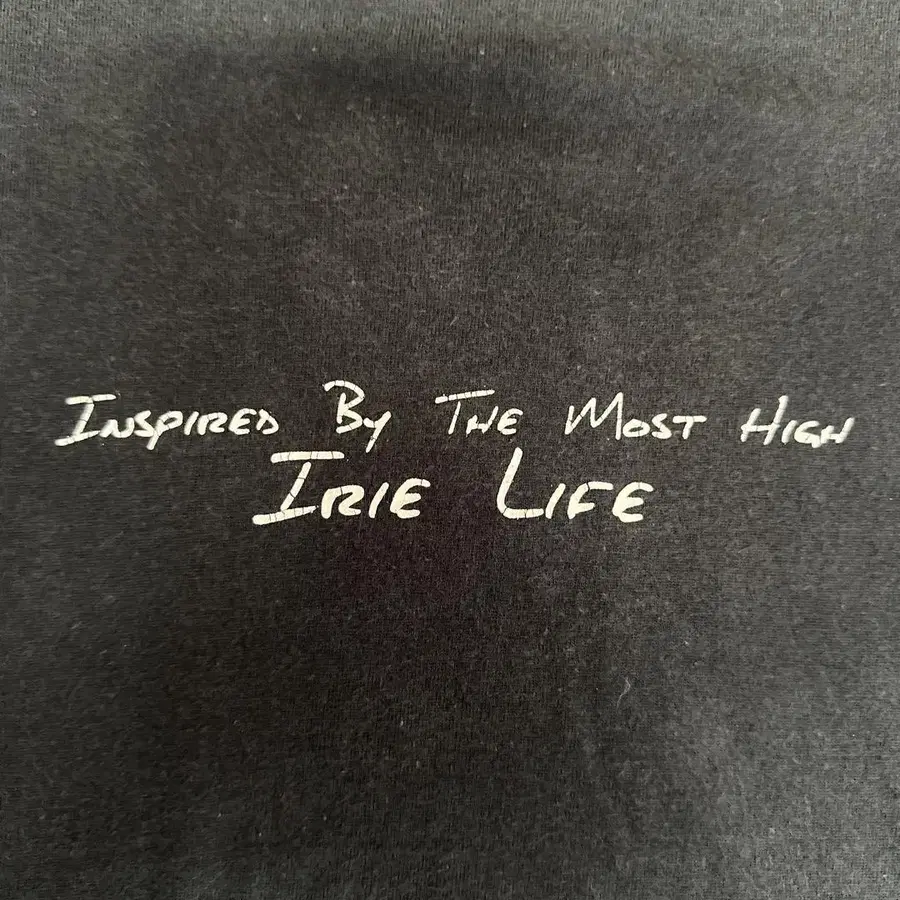 Inspired By The Most High
Irie Life